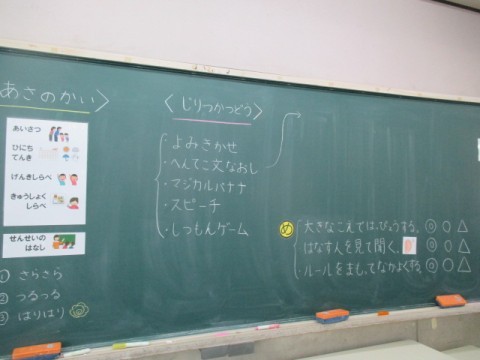 あさのかい〉
あいさつ
ひにち
てんき
げんきしらべ
きゅうしょく
しらべ
せんせいの
はなし
① さらさら
② つるつる
③ はりはり
〈じりつかつどう〉
・よみきかせ
・へんてこ文なおし
・マジカルバナナ
・スピーチ
・しつもんゲーム
め
・大きなこえではっぴょうする。◎ ○ △
・はなす人を見て聞く。◎ ○ △
・ルールをまもってなかよくする。◎ ○ △